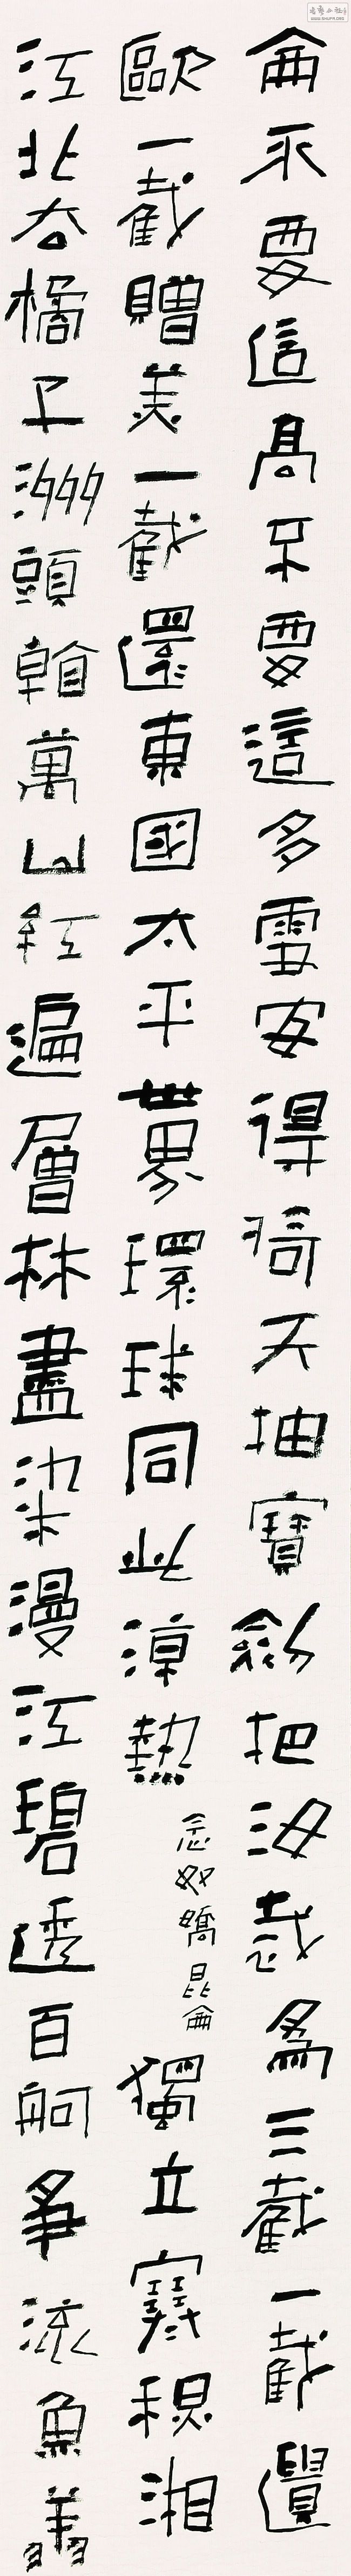 侖不要這高不要這多雪安得倚天抽寶劍把汝裁爲三截一截遺
歐一截贈美一截還東國太平世界環球同此涼熱
念奴嬌昆侖
獨立寒秋湘
江北去橘子洲頭看萬山紅遍層林盡染漫江碧透百舸爭流魚翔